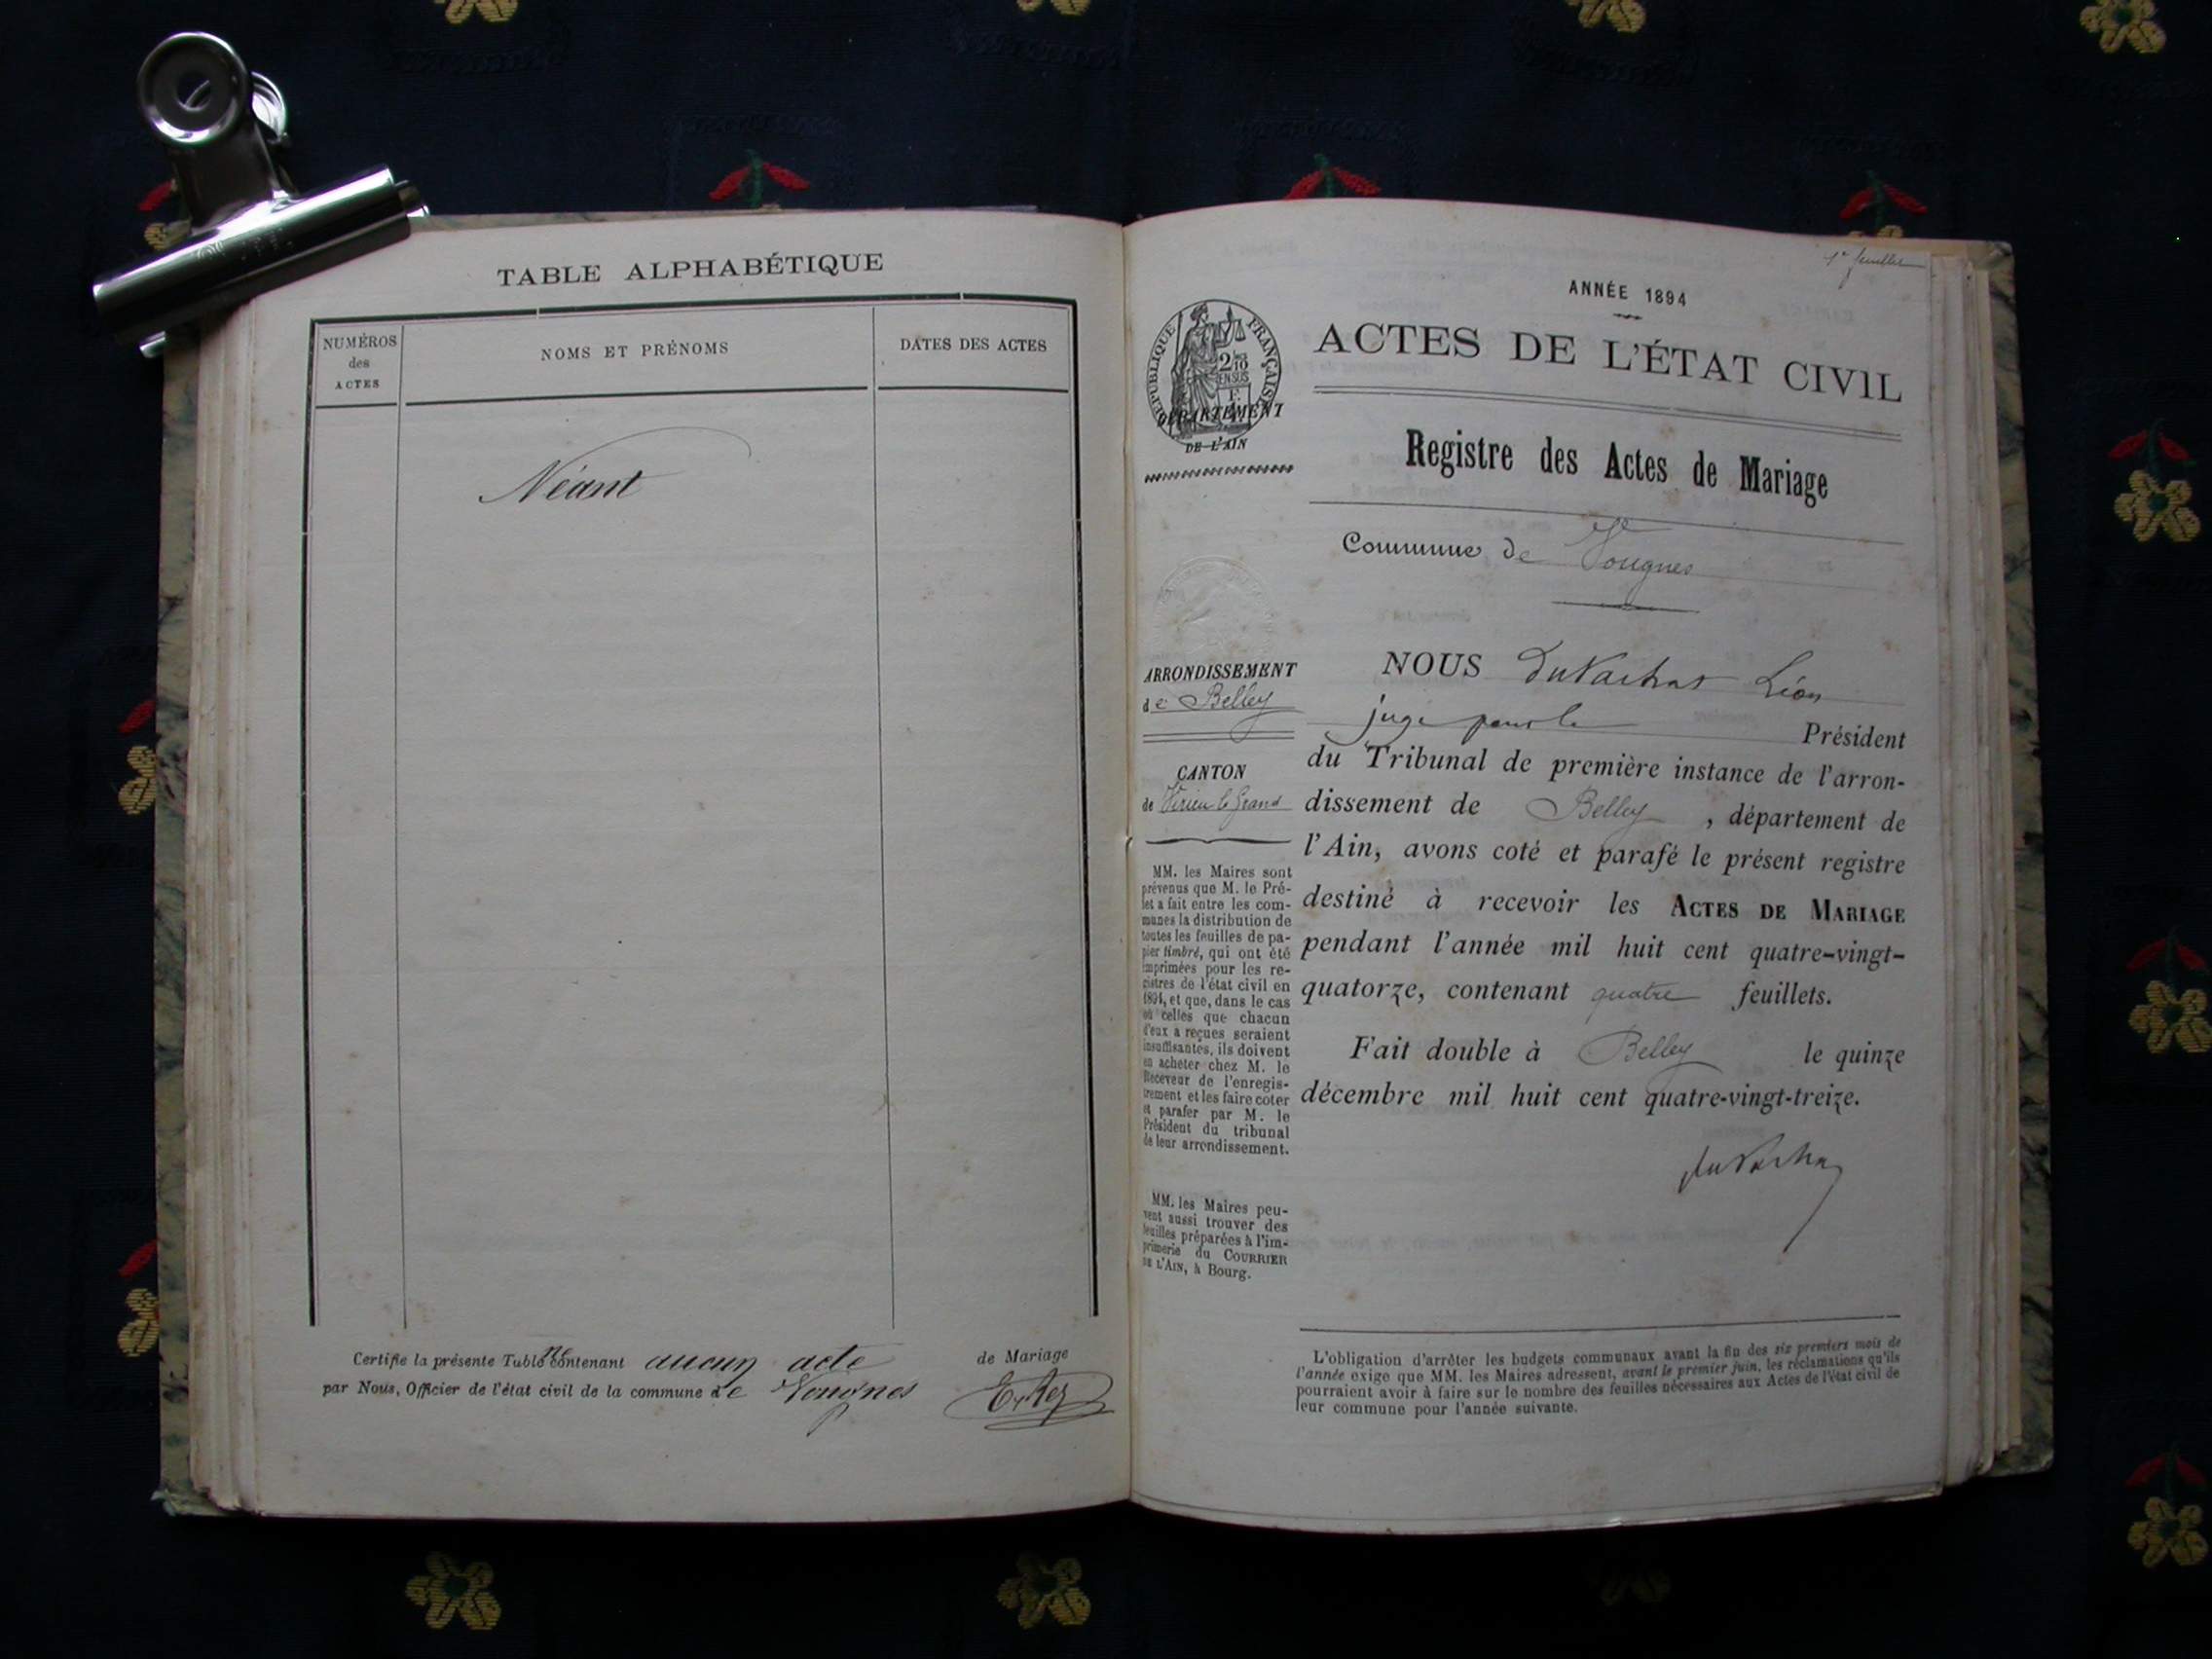 TABLE ALPHABÉTIQUE
NUMÉROS
des
ACTES
NOMS ET PRÉNOMS
DATES DES ACTES
Néant
Certifie la présente Table ne contenant aucun acte de Mariage
par Nous, Officier de l'état civil de la commune de Vongnes
1er feuillet
ANNÉE 1894
ACTES DE L'ÉTAT CIVIL
RÉPUBLIQUE FRANÇAISE
2/10
EN SUS
DÉPARTEMENT
DE L'AIN
Registre des Actes de Mariage
Commune de Vongnes
ARRONDISSEMENT
de Belley
CANTON
de Virieu le Grand
MM. les Maires sont
prévenus que M. le Pré-
fet a fait entre les com-
munes la distribution de
toutes les feuilles de pa-
pier timbré, qui ont été
imprimées pour les re-
gistres de l'état civil en
1894, et que, dans le cas
où celles que chacun
d'eux a reçues seraient
insuffisantes, ils doivent
en acheter chez M. le
Receveur de l'enregis-
trement et les faire coter
et parafer par M. le
Président du tribunal
de leur arrondissement.
MM. les Maires peu-
vent aussi trouver des
feuilles préparées à l'im-
primerie du COURRIER
DE L'AIN, à Bourg.
NOUS Léon
juge pour le Président
du Tribunal de première instance de l'arron-
dissement de Belley, département de
l'Ain, avons coté et parafé le présent registre
destiné à recevoir les ACTES DE MARIAGE
pendant l'année mil huit cent quatre-vingt-
quatorze, contenant quatre feuillets.
Fait double à Belley le quinze
décembre mil huit cent quatre-vingt-treize.
L'obligation d'arrêter les budgets communaux avant la fin des six premiers mois de
l'année exige que MM. les Maires adressent, avant le premier juin, les réclamations qu'ils
pourraient avoir à faire sur le nombre des feuilles nécessaires aux Actes de l'état civil de
leur commune pour l'année suivante.